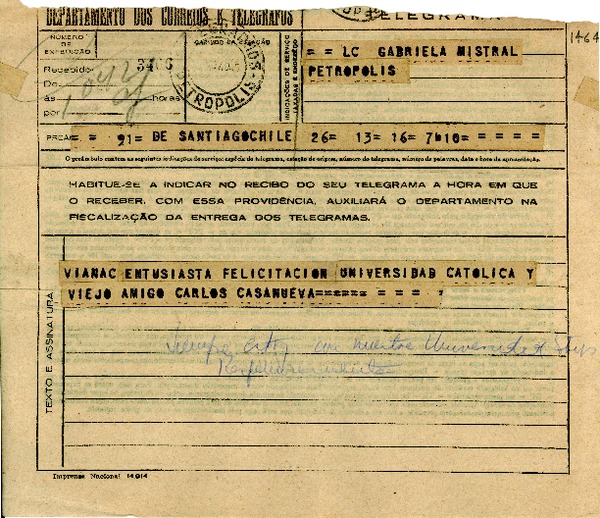 DEPARTAMENTO DOS CORREIOS E TELEGRAFOS
TELEGRAMA
1464
NÚMERO DE EXPEDIÇÃO
CARIMBO DA ESTAÇÃO
3406
Recebido
De
ás horas
por
PETROPOLIS
INDICAÇÕES DE SERVIÇO TAXADAS E ENDEREÇO
= = LC GABRIELA MISTRAL
PETROPOLIS
= = 21= DE SANTIAGOCHILE 26= 13= 16= 7H10= = = = =
O preâmbulo contém as seguintes indicações de serviço: espécie do telegrama, estação de origem, número do telegrama, número de palavras, data e hora da apresentação.
HABITUE-SE A INDICAR NO RECIBO DO SEU TELEGRAMA A HORA EM QUE
O RECEBER. COM ESSA PROVIDÊNCIA, AUXILIARÁ O DEPARTAMENTO NA
FISCALIZAÇÃO DA ENTREGA DOS TELEGRAMAS.
TEXTO E ASSINATURA
VIANAC ENTUSIASTA FELICITACION UNIVERSIDAD CATOLICA Y
VIEJO AMIGO CARLOS CASANUEVA====== = = = ,
Imprensa Nacional 14.014